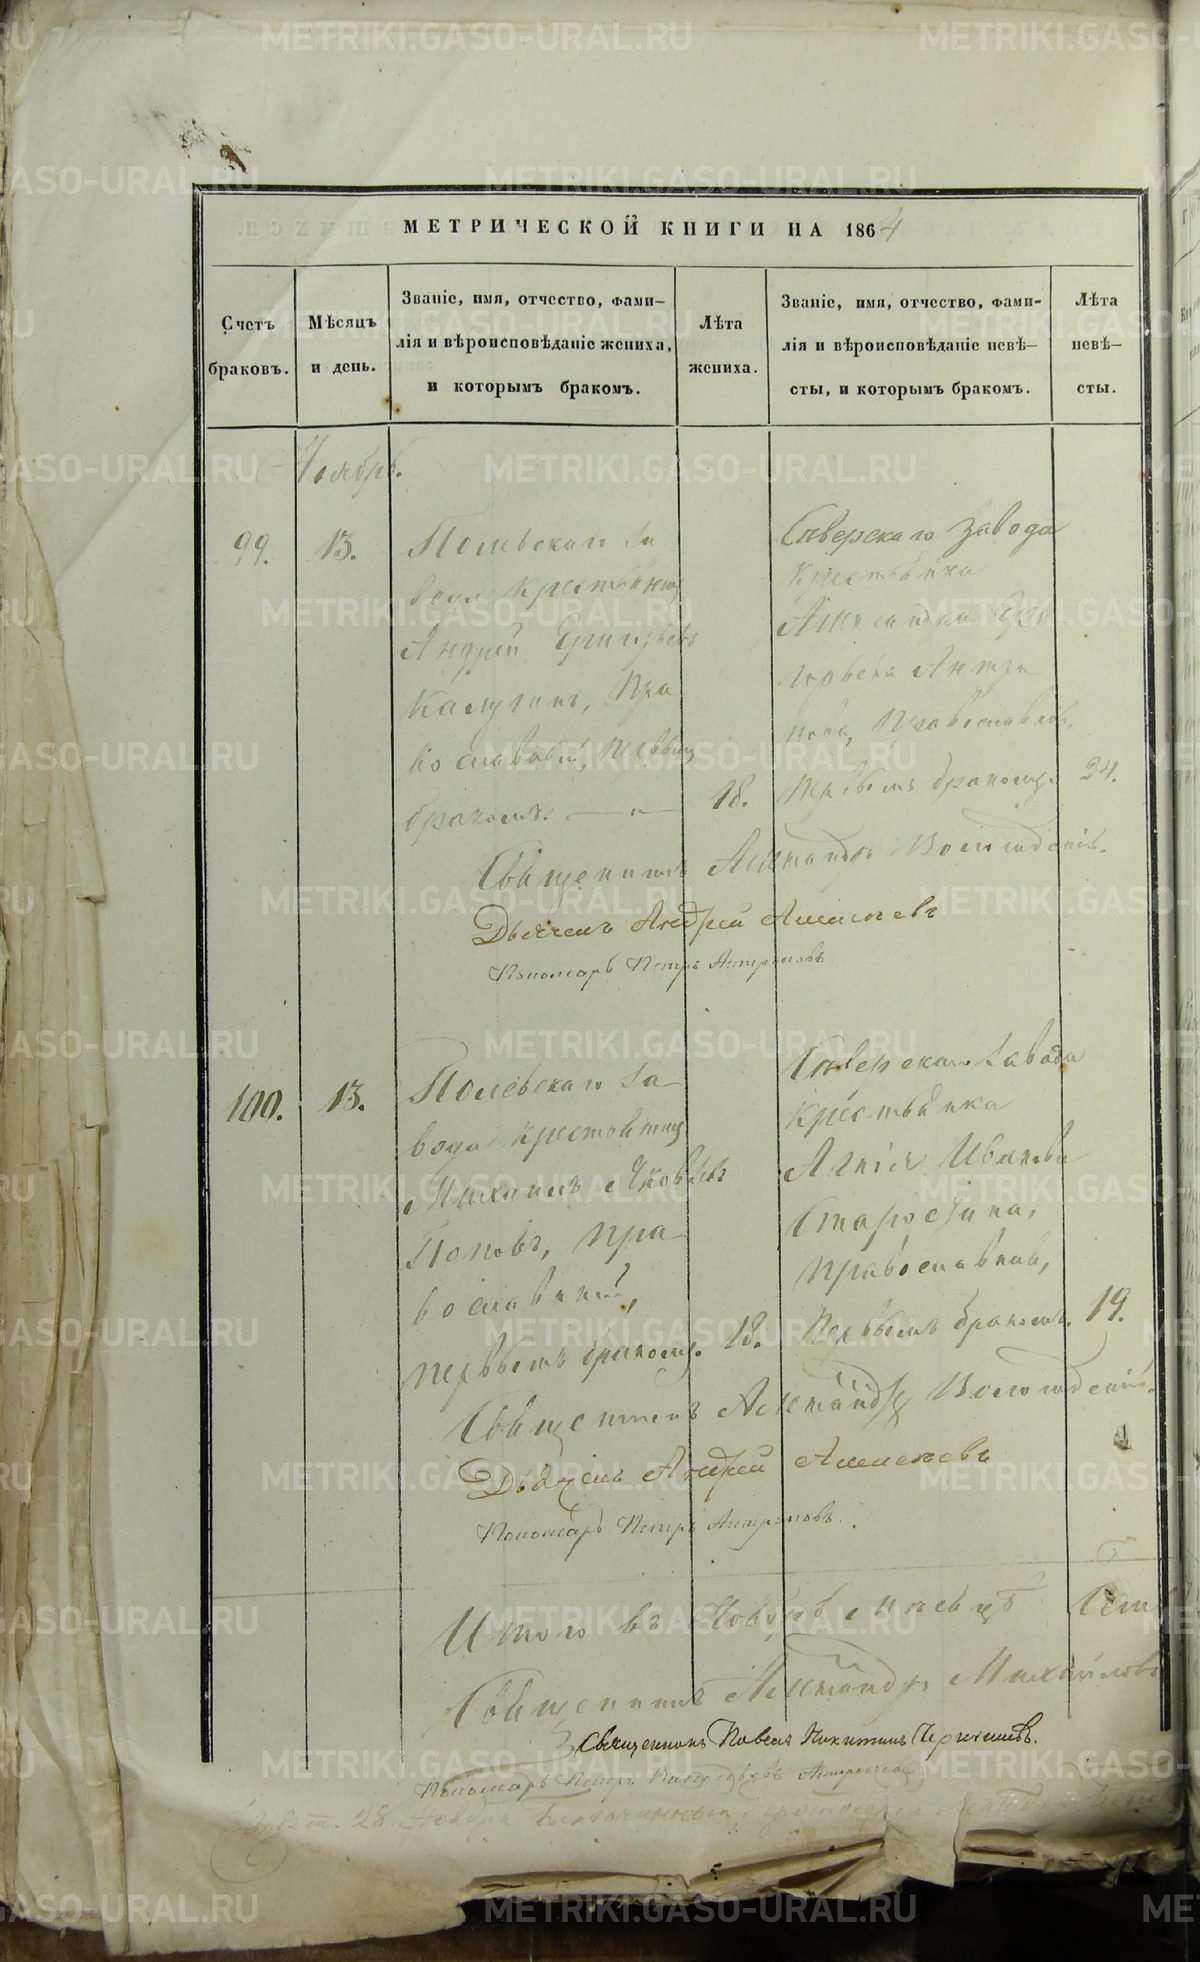 МЕТРИЧЕСКОЙ КНИГИ НА 1864
Счетъ браковъ.
Мѣсяцъ и день.
Званіе, имя, отчество, фами-
лія и вѣроисповѣданіе жениха,
и которымъ бракомъ.
Лѣта жениха.
Званіе, имя, отчество, фами-
лія и вѣроисповѣданіе невѣ-
сты, и которымъ бракомъ.
Лѣта невѣ-
сты.
Ноябрь.
99.
13.
Полевскаго За
вода крестьянинъ
Андрей Григорьевъ
Калугинъ, Пра
вославный, первымъ
бракомъ.
18.
Сѣверскаго Завода
Крестьянка
Александра Гри
горьева Антро
пова, Православнов,
первымъ бракомъ.
24.
Священникъ Александръ
Дьяконъ Андрей
Пономарь Петръ Антроповъ.
100.
13.
Полевскаго За-
вода крестьянинъ
Михаилъ Яковлевъ
Поповъ, пра-
вославный,
первымъ бракомъ.
18.
Сѣверскаго Завода
крестьянка
Агнія Иванова
Старостина,
православная,
Первымъ бракомъ.
19.
Священникъ Александръ
Дьяконъ Андрей
Пономарь Петръ Антроповъ.
Итого въ Ноябрѣ мѣсяцѣ
Священникъ Александръ Михайловъ
Священникъ Павелъ Никитинъ
Пономарь Петръ
28. Ноября
METRIKI.GASO-URAL.RU